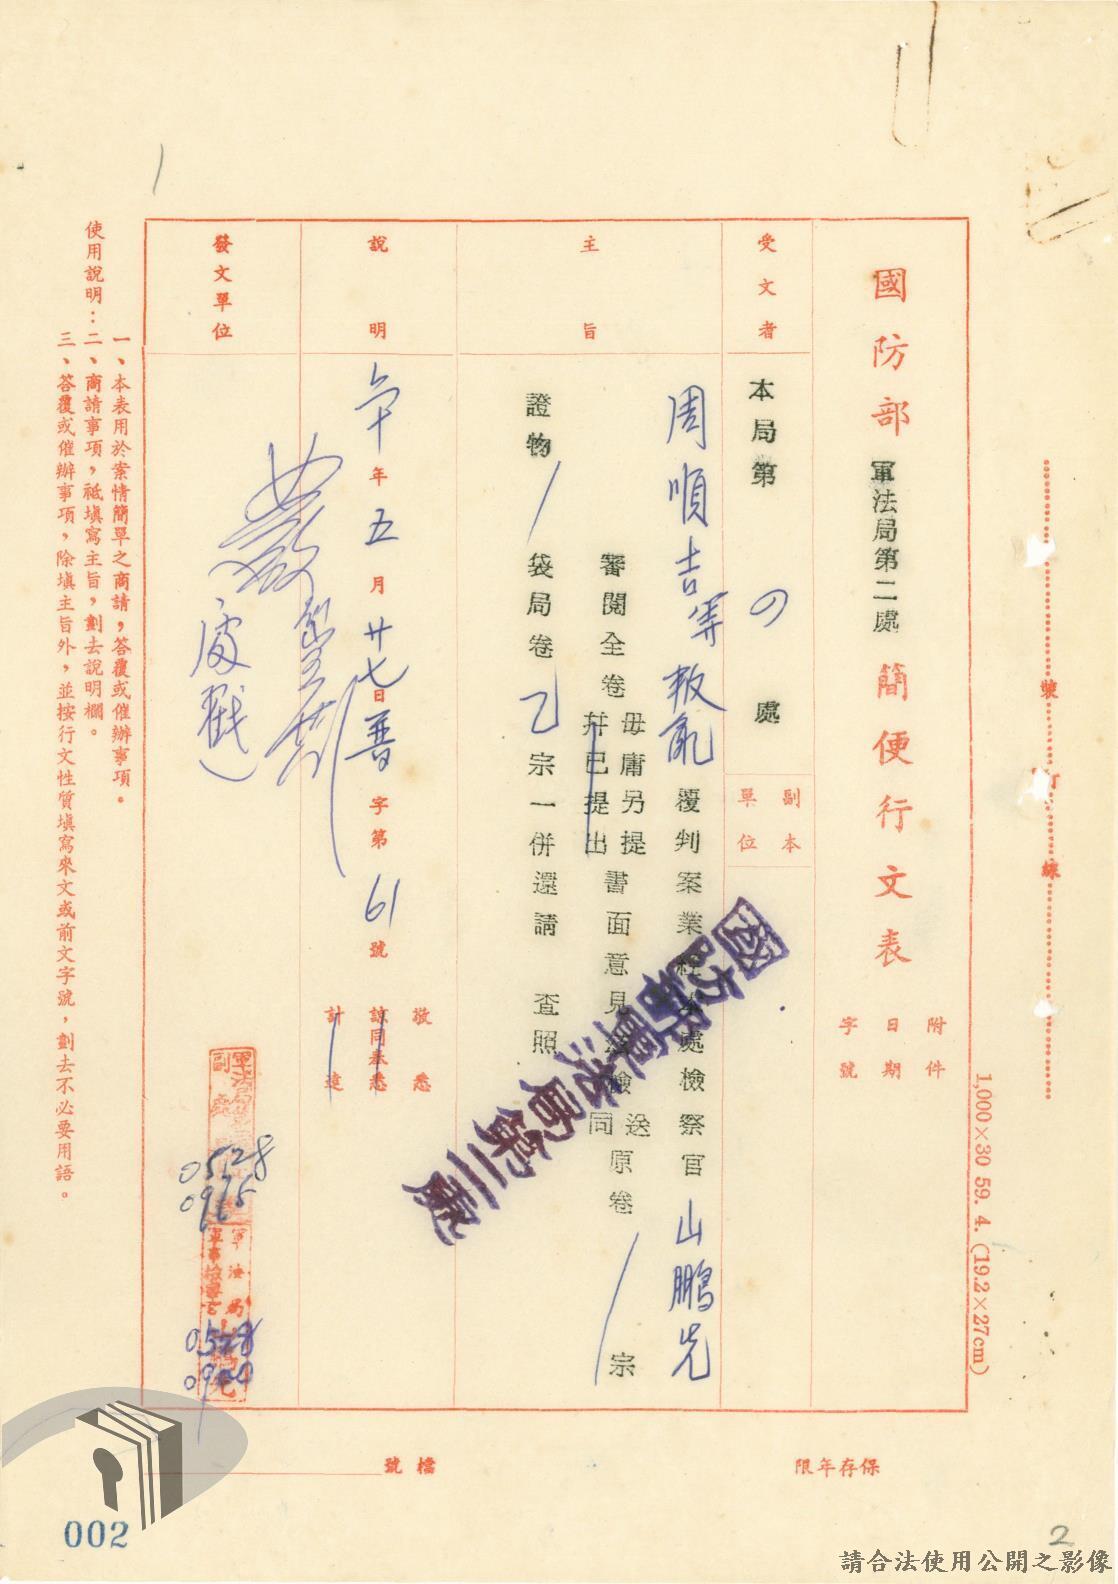 國防部軍法局第二處簡便行文表
附件
日期
字號
受文者
本局第四處
副本
單位
主旨
周順吉等叛亂覆判案業經本處檢察官山鵬先
審閱全卷毋庸另提書面意見
并已提出
檢送原卷/宗
同
證物/袋局卷乙宗一併還請查照
說明
敬悉
諒同恭悉
計達
六十年五月廿七日普字第61號
發文單位
處戳
國防部軍法局第二處
0528
0915
軍法局
軍事檢察官
0528
0900
使用說明：
一、本表用於案情簡單之商請，答覆或催辦事項。
二、商請事項，祗填寫主旨，劃去說明欄。
三、答覆或催辦事項，除填主旨外，並按行文性質填寫來文或前文字號，劃去不必要用語。
裝訂線
1,000×30 59. 4. (19.2×27cm)
保存年限
檔號
002
2
請合法使用公開之影像